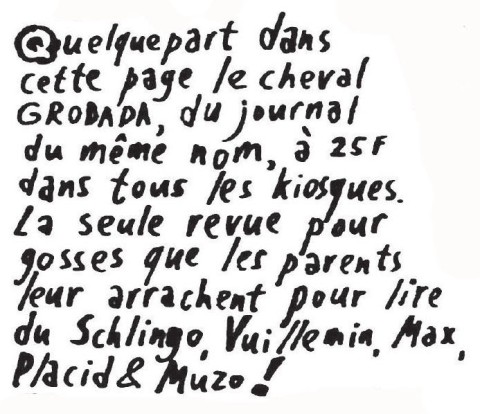 Quelquepart dans
cette page le cheval
GROBADA, du journal
du même nom, à 25F
dans tous les kiosques.
La seule revue pour
gosses que les parents
leur arrachent pour lire
du Schlingo, Vuillemin, Max,
Placid & Muzo!